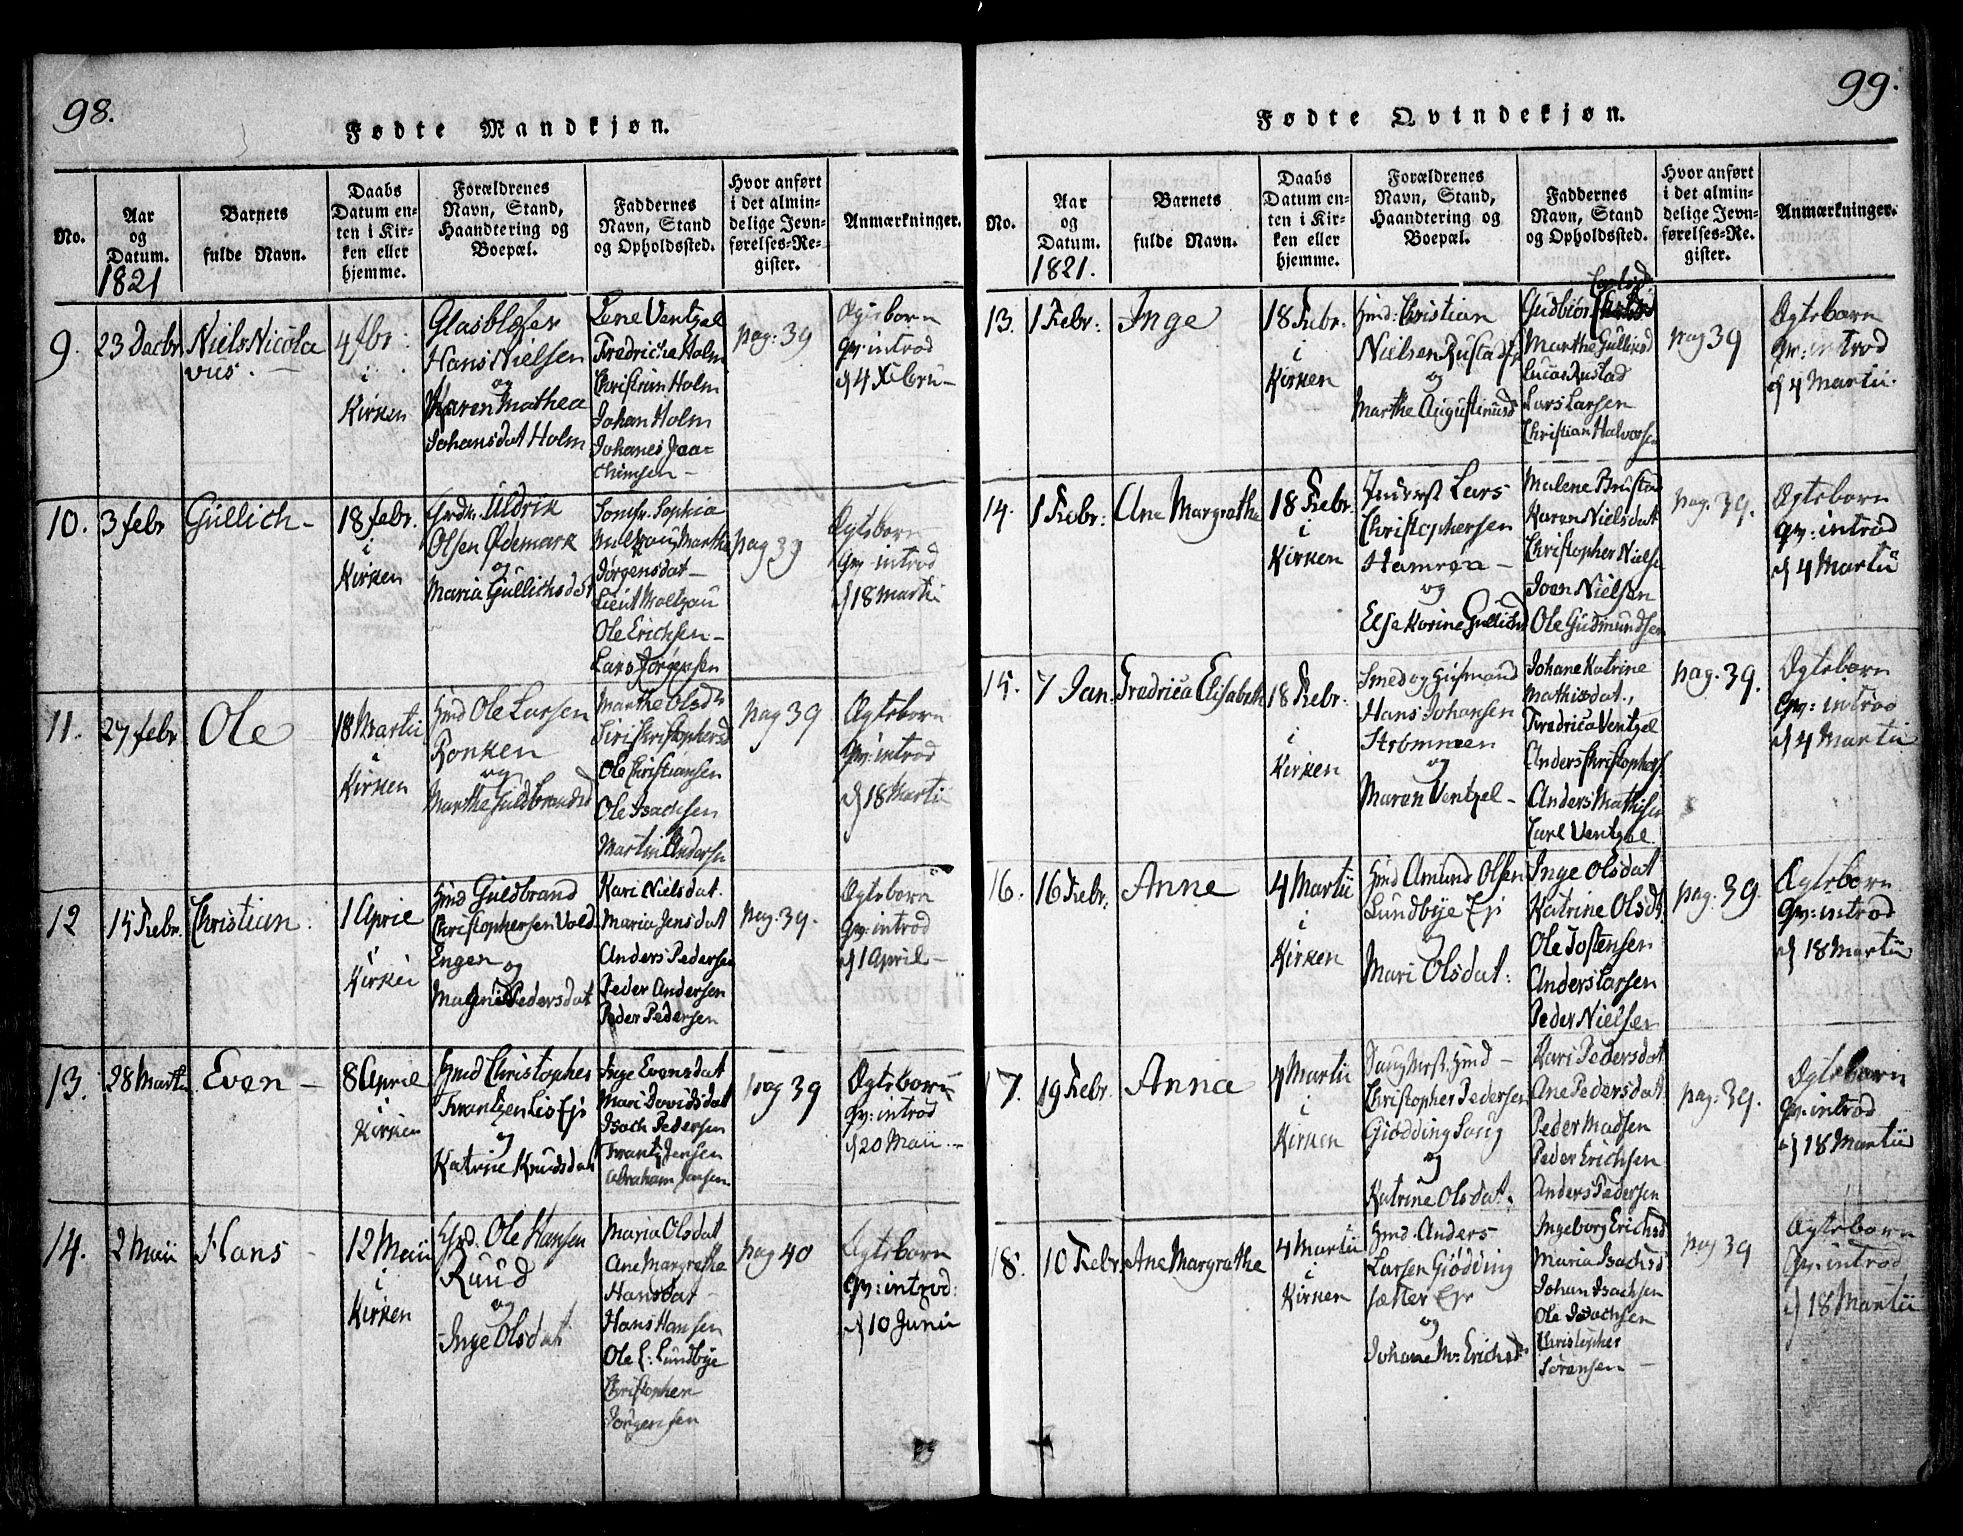 98.
Fødte Mandkjøn.
No.
Aar
og
Datum.
1821
Barnets
fulde Navn.
Daabs
Datum en-
ten i Kir-
ken eller
hjemme.
Forældrenes
Navn, Stand,
Haandtering og
Boepæl.
Faddernes
Navn, Stand
og Opholdssted.
Hvor anført
i det almin-
delige Jevn-
førelses-Re-
gister.
Anmærkninger.
9.
23 Decbr
Niels Nicola
vus. -
4 fbr:
i
Kirken
Glasblæser
Hans Nielsen
og
Karen Mathea
Johansdat Holm
Lene Ventzel
Fredriche Holm
Christian Holm
Johan Holm
Johanes Joa-
chimsen -
pag: 39
Ægteborn
qv: introd
d 4 Febru -
10.
3 febr
Gullich -
18 febr.
i
Kirken
Uldrik
Olsen Ødemark
og
Maria Gullichsdat
Jomfr. Sophia
Marthe
Jörgensdat -
Lieut Moltzau
Ole Erichsen -
Lars Jörgensen
pag 39
Ægteborn
qv: introd
d 18 Martii
11.
27 febr
Ole
18 Martii
i
Kirken
Hmd Ole Larsen
Ronken
og
Marthe Guldbrandsd
Marthe Olsdt
Siri Kristophersd
Ole Christiansen
Ole Isachsen
Martin Andersen
pag 39
Ægteborn
qv: introd
d 18 Martii
12
15 Febr.
Christian.
1 Aprie
i
Kirken
Hmd Guldbrand
Christophersen Vold
Engen
og
Malene Pedersdat
Kari Nielsdat.
Maria Jensdat
Anders Pedersen
Peder Andersen
Peder Pedersen
pag. 39.
Ægteborn
qv: introd
d 1 April -
13.
28 Martii
Even -
8 April
i
Kirken
Hmd Christopher
Frantzen Lis Ejs
og
Katrine Knudsdat
Inge Evensdat
Mari Davidsdat
Isach Pedersen
Frantz Jensen
Abraham Jensen
pag 39
Ægteborn
qv: introd
d 20 Maii -
14.
2 Maii
Hans -
12 Maii
i
Kirken
Ole Hansen
Ruud
og
Inge Olsdat
Maria Olsdat
Ane Margrethe
Hansdat -
Hans Hansen
Ole L: Lundbye
Christopher
Jörgensen
pag 40
Ægteborn
qv: introd:
d 10 Junii
99.
Fødte Qvindekjøn.
No.
Aar
og
Datum.
1821.
Barnets
fulde Navn.
Daabs
Datum en-
ten i Kir-
ken eller
hjemme.
Forældrenes
Navn, Stand,
Haandtering og
Boepæl.
Faddernes
Navn, Stand
og Opholdssted.
Hvor anført
i det almin-
delige Jevn-
førelses-Re-
gister.
Anmærkninger.
13.
1 Febr:
Inge
18 Febr.
i
Kirken
Hmd: Christian
Nielsen Rustad Ejs
og
Marthe Augustinusd
Gudbiör
Marthe Gullichsd
Lucas Rustad
Lars Larsen
Christian Halvorsen
pag 39
Ægteborn
qv: introd
d 4 Martii.
14.
1 Febr:
Ane Margrethe
18 Febr.
i
Kirken
Inderst Lars
Christophersen
Hamren -
og
Else Karine Gullichsd
Malene Brustad
Karen Nielsdat
Christopher Nielse
Joen Nielsen
Ole Gudmundsen
pag. 39.
Ægteborn
qv: introd
d 4 Martii
15.
7 Jan:
Fredrica Elisabeth
18 Febr:
i
Kirken
Smed og Husmand
Hans Johansen
Strömmen
og
Maren Ventzel -
Johane Katrine
Mathisdat.,
Fredrica Ventzel
Anders Christophers
Anders Mathisen
Carl Ventzel
pag. 39.
Ægteborn
qv: introd
d 4 Martii
16.
16 Febr.
Anne
4 Martii
i
Kirken
Hmd Amund Olsen
Lundbye Ejs
og
Mari Olsdat:
Inge Olsdat
Katrine Olsdt.
Ole Jostensen
Anders Larsen
Peder Nielsen
pag. 39.
Ægteborn
qv: introd
d 18 Martii
17.
19 Febr.
Anne
4 Martii
i
Kirken
Saug Mest. Hmd -
Christopher Pedersen
Giødding Saug
og
Katrine Olsdat.
Kari Pedersdat
Ane Pedersdat
Peder Madsen
Peder Erichsen
Anders Pedersen
pag. 39.
Ægteborn
qv: introd
d 18 Martii
18.
10 Febr.
Ane Margrethe
4 Martii
i
Kirken
Hmd Anders
Larsen Giødding
sætter Ejs
og
Johane M. Erichsd
Ingeborg Erichsd
Maria Isachsd
Johan Isachsen
Ole Isachsen
Christopher
Sörensen -
pag 39
Ægteborn
qv: introd
d 18 Martii